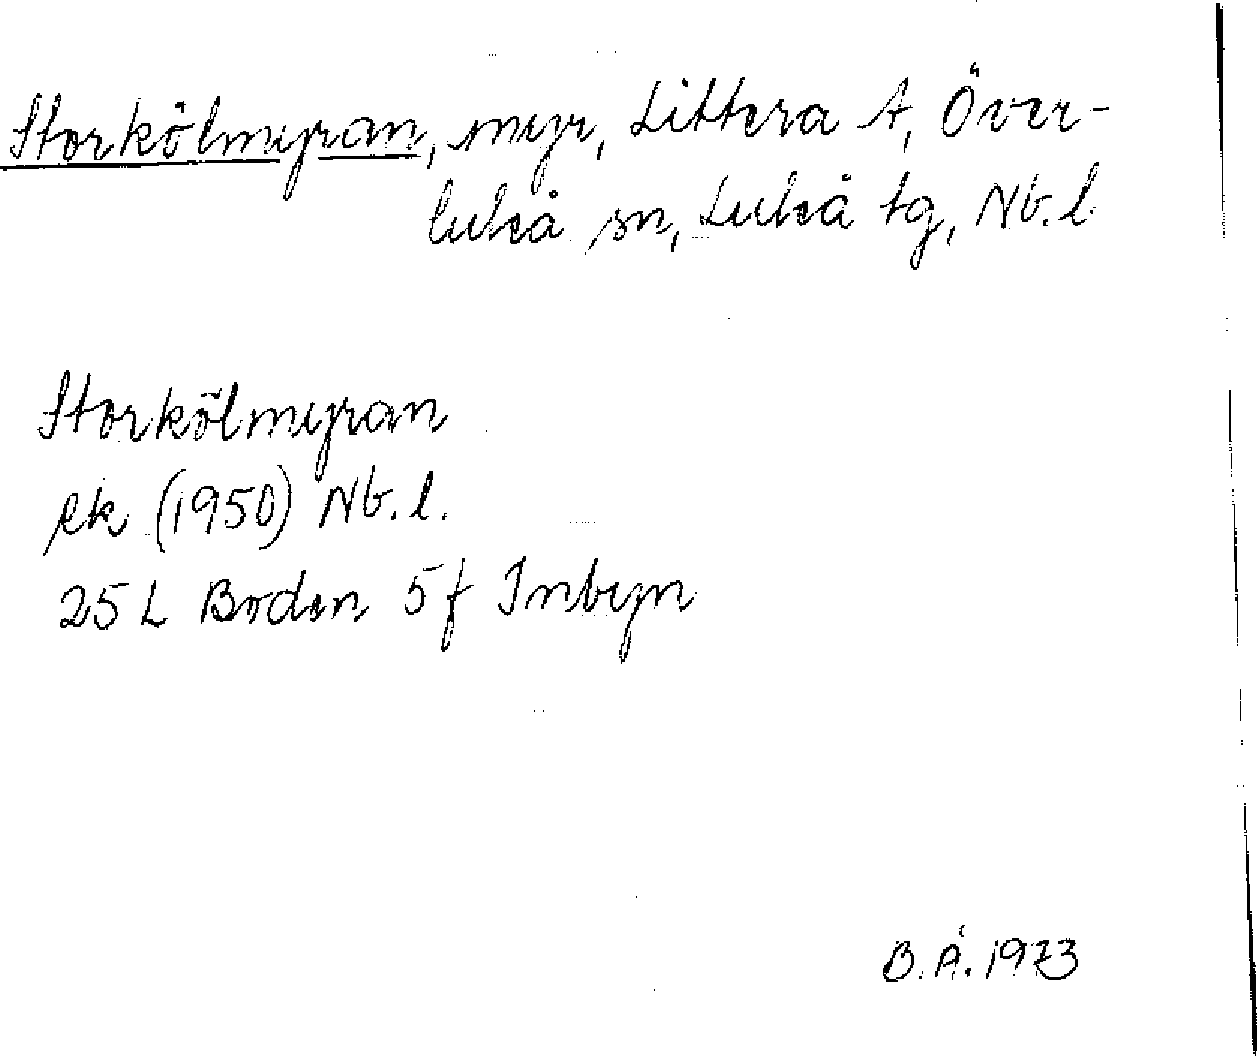 Storkölmyran, myr, Littera A, Över-
luleå sn, Luleå tg, Nb. l.
Storkölmyran
ek (1950) Nb. l.
25 L Boden 5 f Inbyn
B. Å. 1973